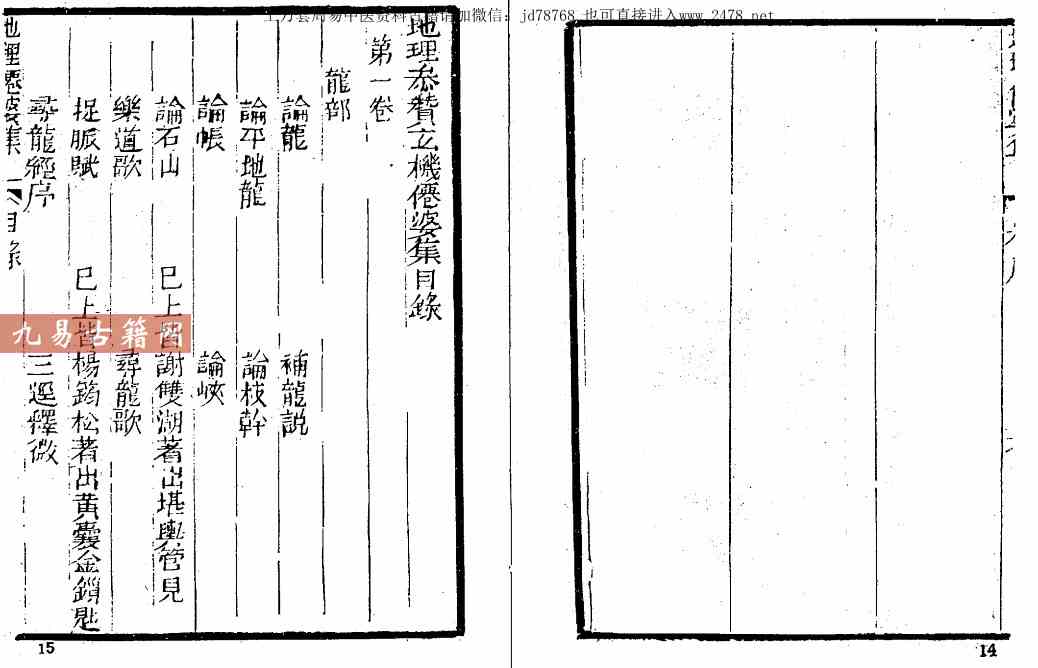 上万套周易中医资料古籍请加微信: jd78768 也可直接进入www.2478.net
地理叅贊玄機僊婆集目錄
第一卷
龍部
論龍 補龍説
論平地龍 論枝幹
論帳 論峽
論石山 巳上皆謝雙湖著出堪輿管見
樂道歌 尋龍歌
捉脈賦 巳上皆楊筠松著出黃囊金鎖匙
尋龍經序 三逕釋微
地理僊婆集 目錄
九易古籍网
15
14